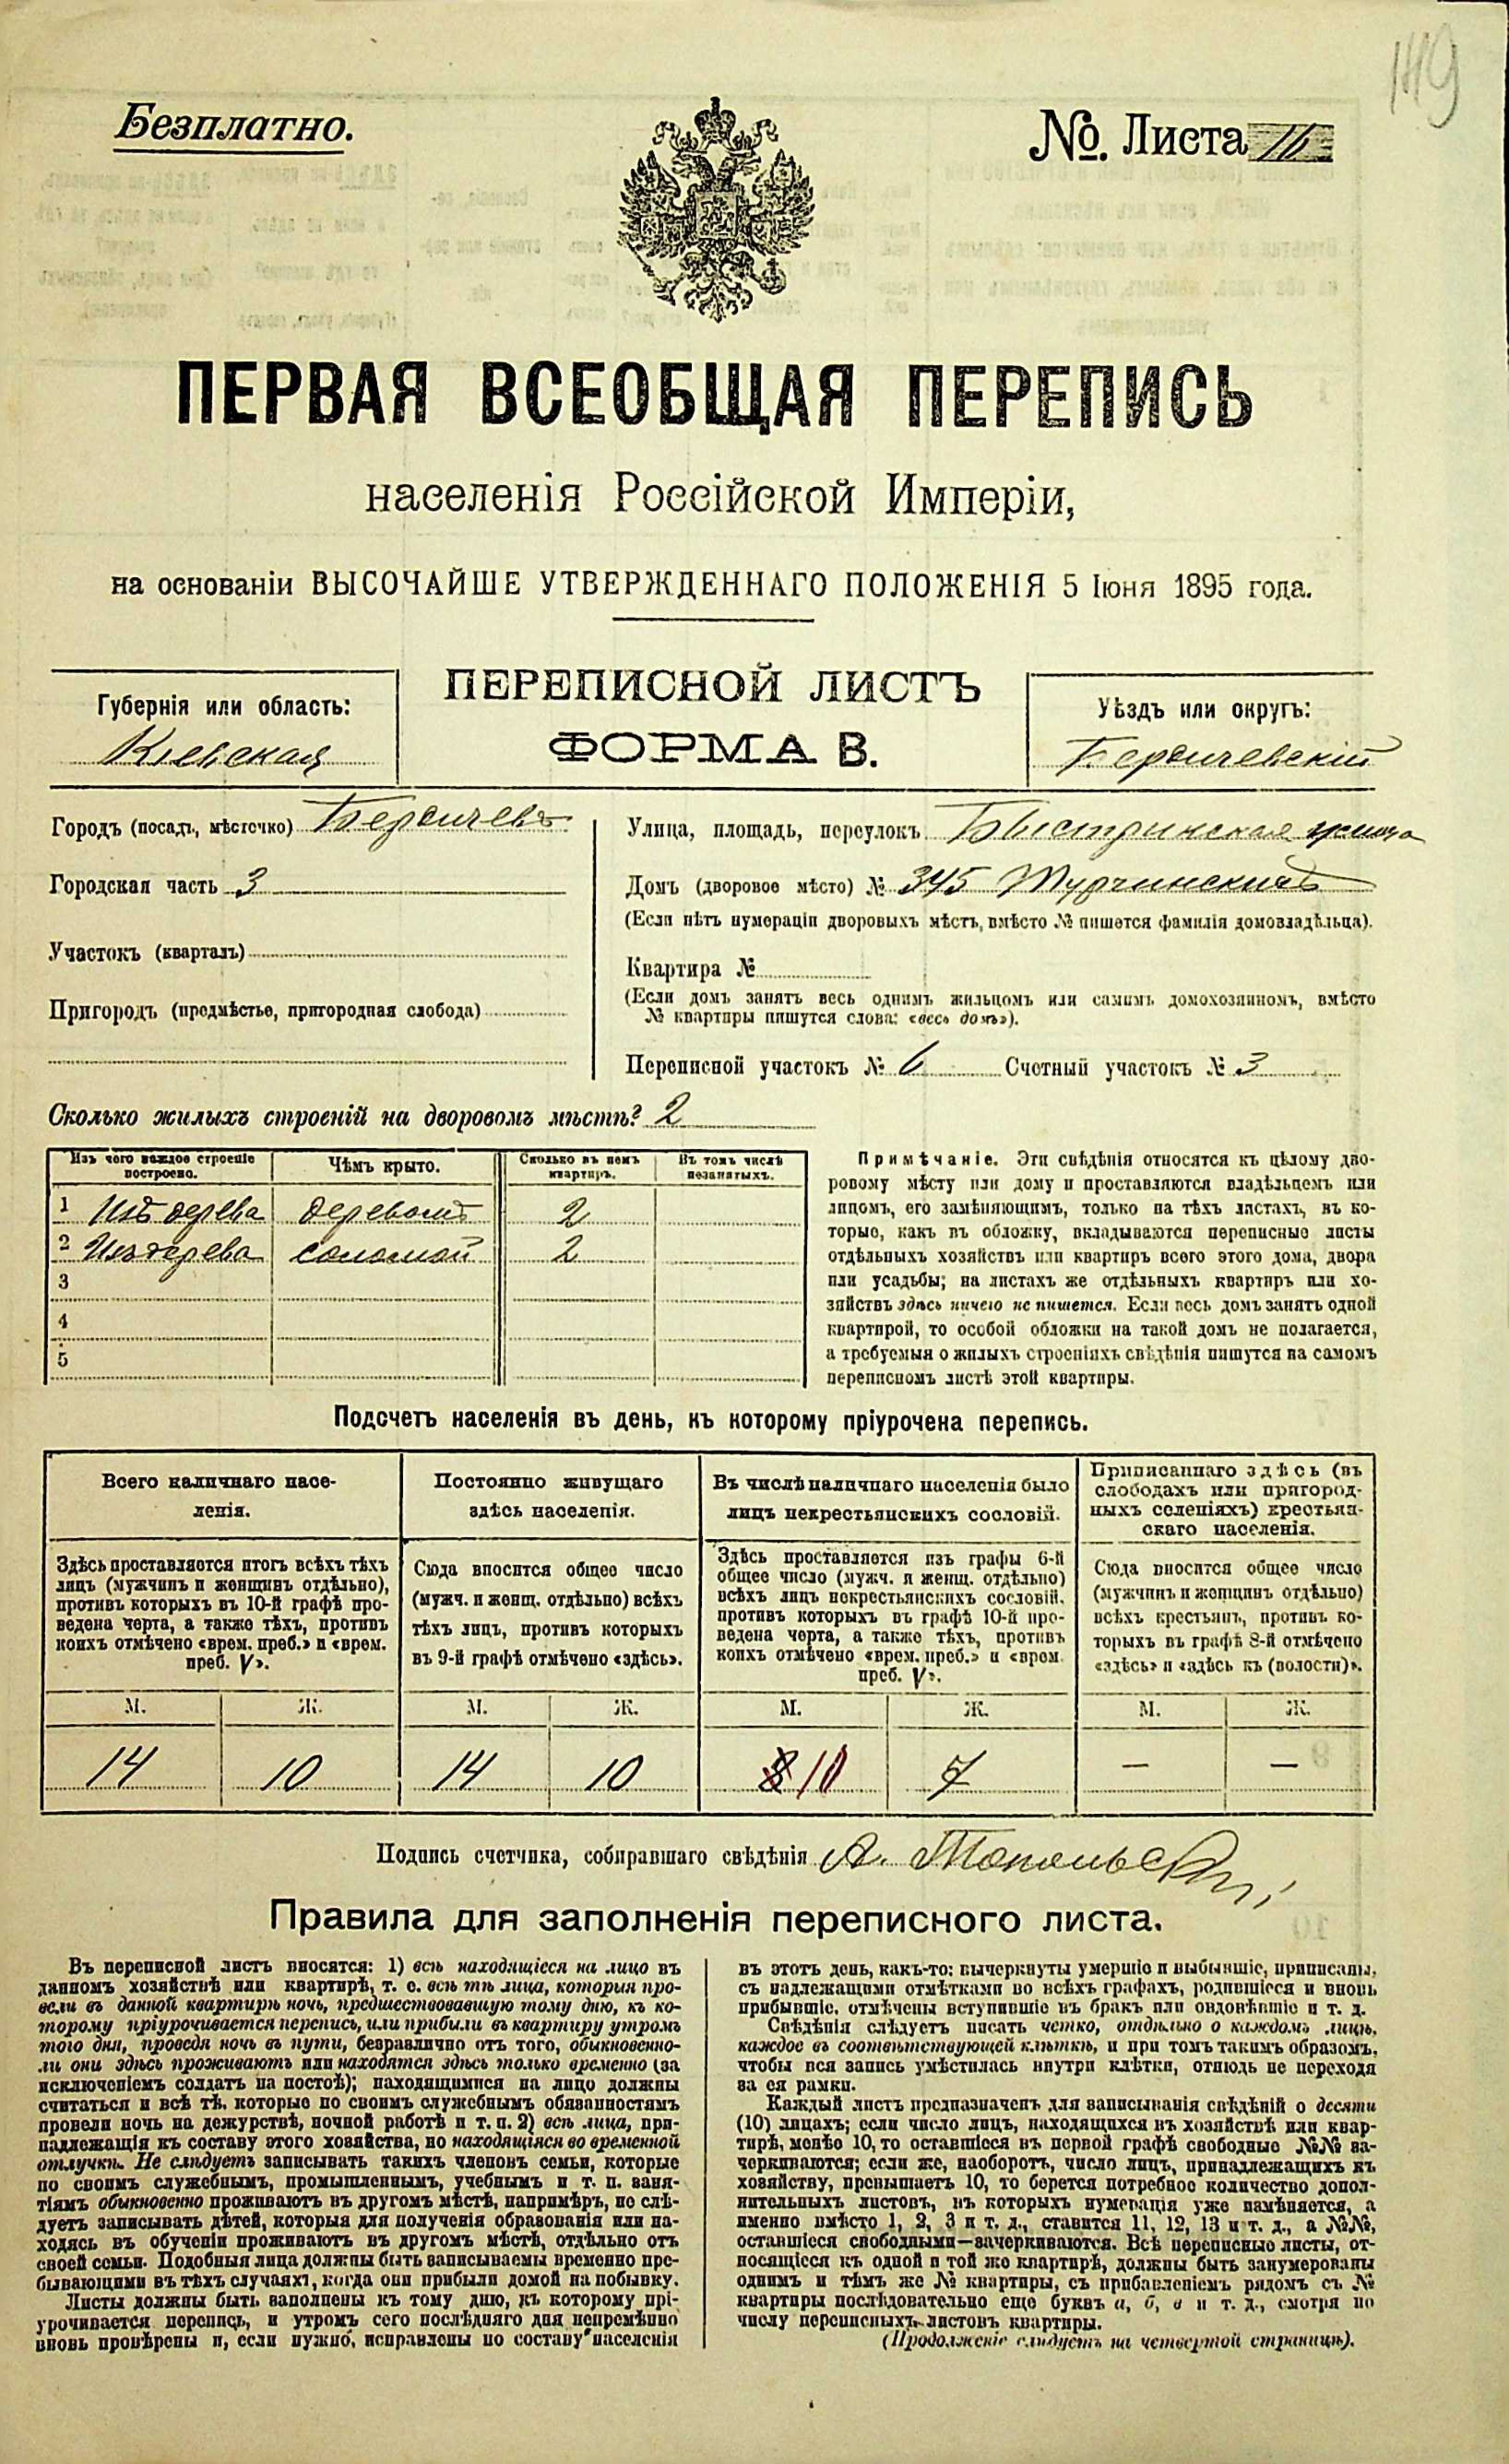 149
Безплатно.
№. Листа 16
ПЕРВАЯ ВСЕОБЩАЯ ПЕРЕПИСЬ
населенія Россійской Имперіи,
на основаніи ВЫСОЧАЙШЕ УТВЕРЖДЕННАГО ПОЛОЖЕНІЯ 5 Іюня 1895 года.
ПЕРЕПИСНОЙ ЛИСТЪ
ФОРМА В.
Губернія или область:
Кіевская
Уѣздъ или округъ:
Бердичевскій
Городъ (посадъ, мѣстечко) Бердичевъ
Городская часть 3
Участокъ (кварталъ)
Пригородъ (предмѣстье, пригородная слобода)
Улица, площадь, переулокъ Быстринская улица
Домъ (дворовое мѣсто) № 345
(Если нѣтъ нумераціи дворовыхъ мѣстъ, вмѣсто № пишется фамилія домовладѣльца).
Квартира №
(Если домъ занятъ весь однимъ жильцомъ или самимъ домохозяиномъ, вмѣсто
№ квартиры пишутся слова: «весь домъ»).
Переписной участокъ № 6 Счетный участокъ № 3
Сколько жилыхъ строеній на дворовомъ мѣстѣ? 2
Изъ чего каждое строеніе
построено.
Чѣмъ крыто.
Сколько въ немъ
квартиръ.
Въ томъ числѣ
незанятыхъ.
1 Изъ дерева деревомъ 2
2 Изъ дерева соломой 2
3
4
5
Примѣчаніе. Эти свѣдѣнія относятся къ цѣлому дво-
ровому мѣсту или дому и проставляются владѣльцемъ или
лицомъ, его замѣняющимъ, только на тѣхъ листахъ, въ ко-
торые, какъ въ обложку, вкладываются переписные листы
отдѣльныхъ хозяйствъ или квартиръ всего этого дома, двора
или усадьбы; на листахъ же отдѣльныхъ квартиръ или хо-
зяйствъ здѣсь ничего не пишется. Если весь домъ занятъ одной
квартирой, то особой обложки на такой домъ не полагается,
а требуемыя о жилыхъ строеніяхъ свѣдѣнія пишутся на самомъ
переписномъ листѣ этой квартиры.
Подсчетъ населенія въ день, къ которому пріурочена перепись.
Всего наличнаго насе-
ленія.
Здѣсь проставляется итогъ всѣхъ тѣхъ
лицъ (мужчинъ и женщинъ отдѣльно),
противъ которыхъ въ 10-й графѣ про-
ведена черта, а также тѣхъ, противъ
коихъ отмѣчено «врем. преб.» и «врем.
преб. V».
М. Ж.
14 10
Постоянно живущаго
здѣсь населенія.
Сюда вносится общее число
(мужч. и женщ. отдѣльно) всѣхъ
тѣхъ лицъ, противъ которыхъ
въ 9-й графѣ отмѣчено «здѣсь».
М. Ж.
14 10
Въ числѣ наличнаго населенія было
лицъ некрестьянскихъ сословій.
Здѣсь проставляется изъ графы 6-й
общее число (мужч. и женщ. отдѣльно)
всѣхъ лицъ некрестьянскихъ сословій,
противъ которыхъ въ графѣ 10-й про-
ведена черта, а также тѣхъ, противъ
коихъ отмѣчено «врем. преб.» и «врем.
преб. V».
М. Ж.
8 10 7
Приписаннаго здѣсь (въ
слободахъ или пригород-
ныхъ селеніяхъ) крестьян-
скаго населенія.
Сюда вносится общее число
(мужчинъ и женщинъ отдѣльно)
всѣхъ крестьянъ, противъ ко-
торыхъ въ графѣ 8-й отмѣчено
«здѣсь» и «здѣсь къ (волости)».
М. Ж.
— —
Подпись счетчика, собиравшаго свѣдѣнія А. Топольскій
Правила для заполненія переписного листа.
Въ переписной листъ вносятся: 1) всѣ находящіеся на лицо въ
данномъ хозяйствѣ или квартирѣ, т. е. всѣ тѣ лица, которыя про-
вели въ данной квартирѣ ночь, предшествовавшую тому дню, къ ко-
торому пріурочивается перепись, или прибыли въ квартиру утромъ
того дня, проведя ночь въ пути, безразлично отъ того, обыкновенно-
ли они здѣсь проживаютъ или находятся здѣсь только временно (за
исключеніемъ солдатъ на постоѣ); находящимися на лицо должны
считаться и всѣ тѣ, которые по своимъ служебнымъ обязанностямъ
провели ночь на дежурствѣ, ночной работѣ и т. п. 2) всѣ лица, при-
надлежащія къ составу этого хозяйства, но находящіяся во временной
отлучкѣ. Не слѣдуетъ записывать такихъ членовъ семьи, которые
по своимъ служебнымъ, промышленнымъ, учебнымъ и т. п. заня-
тіямъ обыкновенно проживаютъ въ другомъ мѣстѣ, напримѣръ, не слѣ-
дуетъ записывать дѣтей, которыя для полученія образованія или на-
ходясь въ обученіи проживаютъ въ другомъ мѣстѣ, отдѣльно отъ
своей семьи. Подобныя лица должны быть записываемы временно пре-
бывающими въ тѣхъ случаяхъ, когда они прибыли домой на побывку.
Листы должны быть заполнены къ тому дню, къ которому прі-
урочивается перепись, и утромъ сего послѣдняго дня непремѣнно
вновь провѣрены и, если нужно, исправлены по составу населенія
въ этотъ день, какъ-то: вычеркнуты умершіе и выбывшіе, приписаны,
съ надлежащими отмѣтками во всѣхъ графахъ, родившіеся и вновь
прибывшіе, отмѣчены вступившіе въ бракъ или овдовѣвшіе и т. д.
Свѣдѣнія слѣдуетъ писать четко, отдѣльно о каждомъ лицѣ,
каждое въ соотвѣтствующей клѣткѣ, и при томъ такимъ образомъ,
чтобы вся запись умѣстилась внутри клѣтки, отнюдь не переходя
за ея рамки.
Каждый листъ предназначенъ для записыванія свѣдѣній о десяти
(10) лицахъ; если число лицъ, находящихся въ хозяйствѣ или квар-
тирѣ, менѣе 10, то оставшіеся въ первой графѣ свободные №№ за-
черкиваются; если же, наоборотъ, число лицъ, принадлежащихъ къ
хозяйству, превышаетъ 10, то берется потребное количество допол-
нительныхъ листовъ, въ которыхъ нумерація уже измѣняется, а
именно вмѣсто 1, 2, 3 и т. д., ставится 11, 12, 13 и т. д., а №№,
оставшіеся свободными—зачеркиваются. Всѣ переписные листы, от-
носящіеся къ одной и той же квартирѣ, должны быть занумерованы
однимъ и тѣмъ же № квартиры, съ прибавленіемъ рядомъ съ №
квартиры послѣдовательно еще буквъ а, б, в и т. д., смотря по
числу переписныхъ листовъ квартиры.
(Продолженіе слѣдуетъ на четвертой страницѣ).